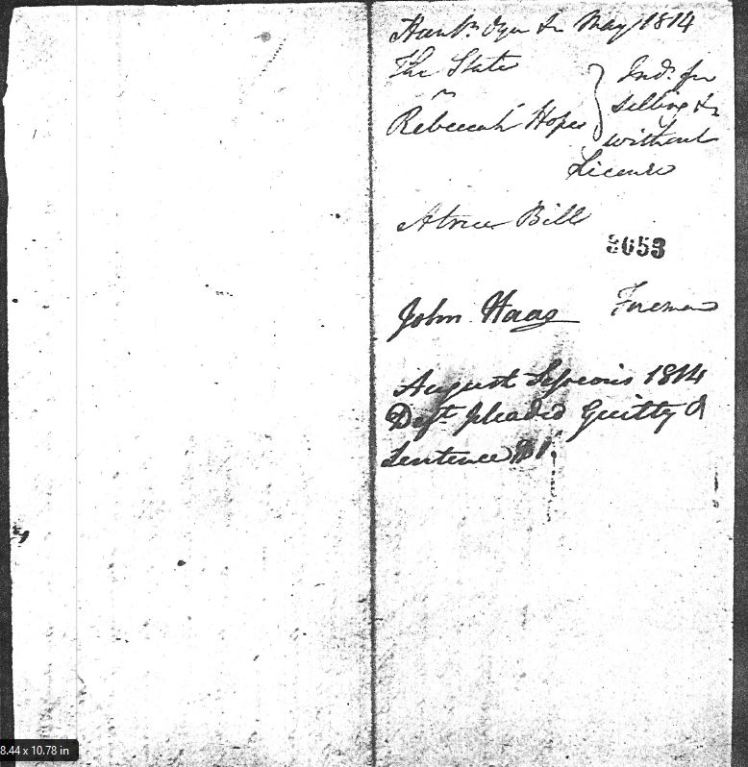 Hunt.n Oyer &c May 1814
The State
vs
Rebeccah Hopes
Ind.t for
selling &c
without
License
A true Bill
3653
John Haas Foreman
August Sessions 1814
Def.t pleaded Guilty &
Sentence $1
8.44 x 10.78 in